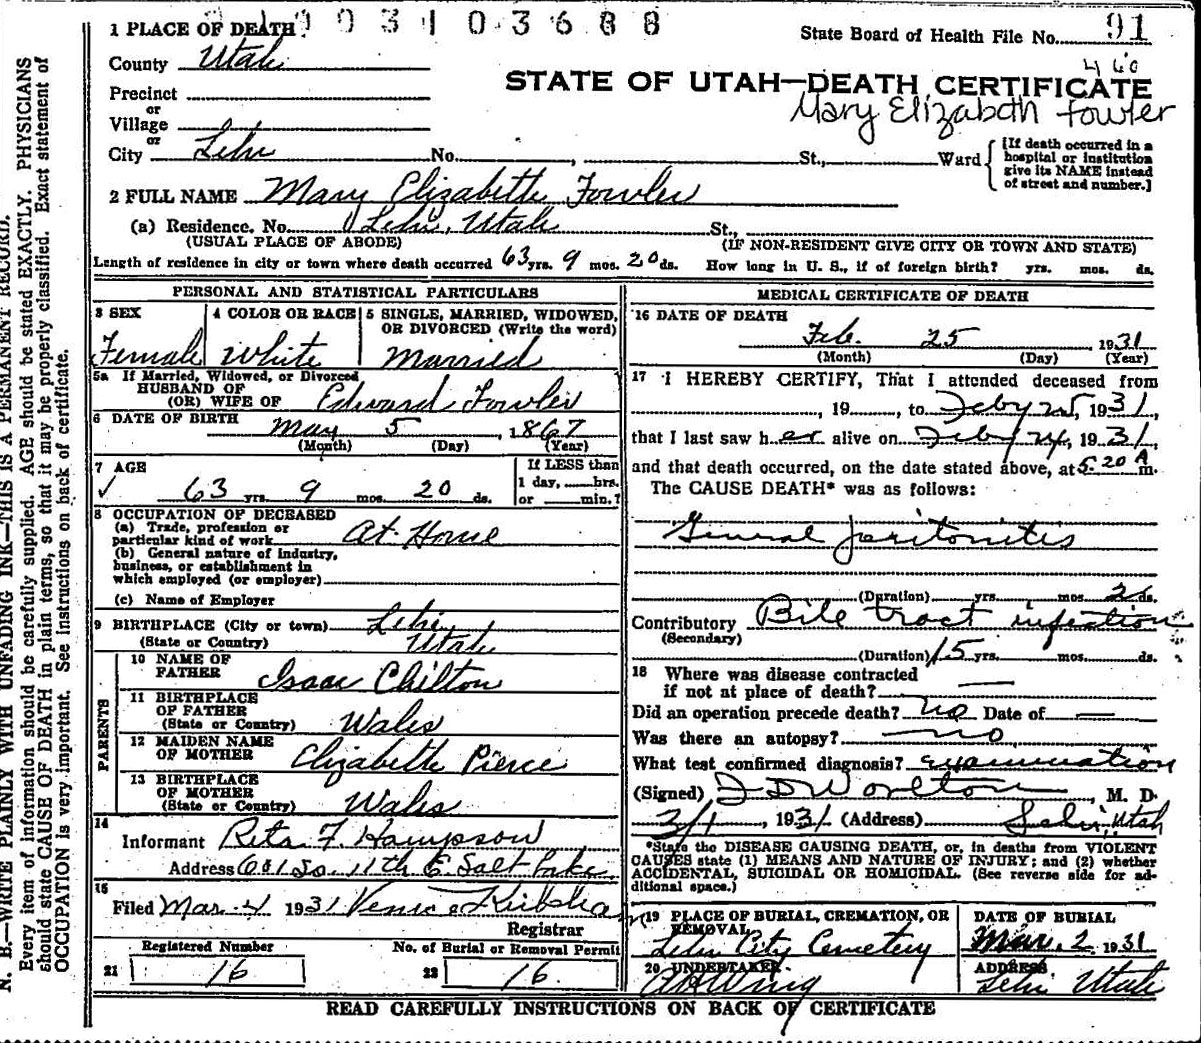 1 PLACE OF DEATH
0 0 3 1 0 3 6 8 8
State Board of Health File No. 91
460
County Utah
STATE OF UTAH—DEATH CERTIFICATE
Mary Elizabeth Fowler
Precinct
or
Village
or
City Lehi No. , St., Ward
[If death occurred in a hospital or institution give its NAME instead of street and number.]
2 FULL NAME Mary Elizabeth Fowler
(a) Residence. No. Lehi, Utah St.,
(USUAL PLACE OF ABODE) (IF NON-RESIDENT GIVE CITY OR TOWN AND STATE)
Length of residence in city or town where death occurred 63 yrs. 9 mos. 20 ds. How long in U. S., if of foreign birth? yrs. mos. ds.
PERSONAL AND STATISTICAL PARTICULARS
3 SEX 4 COLOR OR RACE 5 SINGLE, MARRIED, WIDOWED,
OR DIVORCED (Write the word)
Female White Married
5a If Married, Widowed, or Divorced
HUSBAND OF
(OR) WIFE OF Edward Fowler
6 DATE OF BIRTH May 5 1867
(Month) (Day) (Year)
7 AGE If LESS than
✓ 63 yrs. 9 mos. 20 ds. 1 day, hrs.
or min.?
8 OCCUPATION OF DECEASED
(a) Trade, profession or
particular kind of work At Home
(b) General nature of industry,
business, or establishment in
which employed (or employer)
(c) Name of Employer
9 BIRTHPLACE (City or town) Lehi
(State or Country) Utah
PARENTS
10 NAME OF
FATHER Isaac Chilton
11 BIRTHPLACE
OF FATHER
(State or Country) Wales
12 MAIDEN NAME
OF MOTHER Elizabeth Pierce
13 BIRTHPLACE
OF MOTHER
(State or Country) Wales
14
Informant Reta F. Hampson
Address 601 So. 11th E. Salt Lake
15
Filed Mar. 4 1931
Registrar
Registered Number No. of Burial or Removal Permit
21 16 22 16
MEDICAL CERTIFICATE OF DEATH
16 DATE OF DEATH
Feb. 25 1931
(Month) (Day) (Year)
17 I HEREBY CERTIFY, That I attended deceased from
, 19 , to Feby 25, 1931,
that I last saw her alive on Feby 24, 1931
and that death occurred, on the date stated above, at 5:20 A m.
The CAUSE DEATH* was as follows:
General peritonitis
(Duration) yrs. mos. ds.
Contributory Bile tract infection
(Secondary)
(Duration) 15 yrs. mos. ds.
18 Where was disease contracted
if not at place of death? —
Did an operation precede death? no Date of —
Was there an autopsy? no
What test confirmed diagnosis? examination
(Signed) , M. D.
3/1, 1931 (Address) Lehi, Utah
*State the DISEASE CAUSING DEATH, or, in deaths from VIOLENT
CAUSES state (1) MEANS AND NATURE OF INJURY; and (2) whether
ACCIDENTAL, SUICIDAL OR HOMICIDAL. (See reverse side for ad-
ditional space.)
19 PLACE OF BURIAL, CREMATION, OR
REMOVAL
Lehi City Cemetery
DATE OF BURIAL
Mar. 2 1931
20 UNDERTAKER
A H Wing
ADDRESS
Lehi Utah
READ CAREFULLY INSTRUCTIONS ON BACK OF CERTIFICATE
N. B.—WRITE PLAINLY WITH UNFADING INK—THIS IS A PERMANENT RECORD.
Every item of information should be carefully supplied. AGE should be stated EXACTLY. PHYSICIANS
should state CAUSE OF DEATH in plain terms, so that it may be properly classified. Exact statement of
OCCUPATION is very important. See instructions on back of certificate.